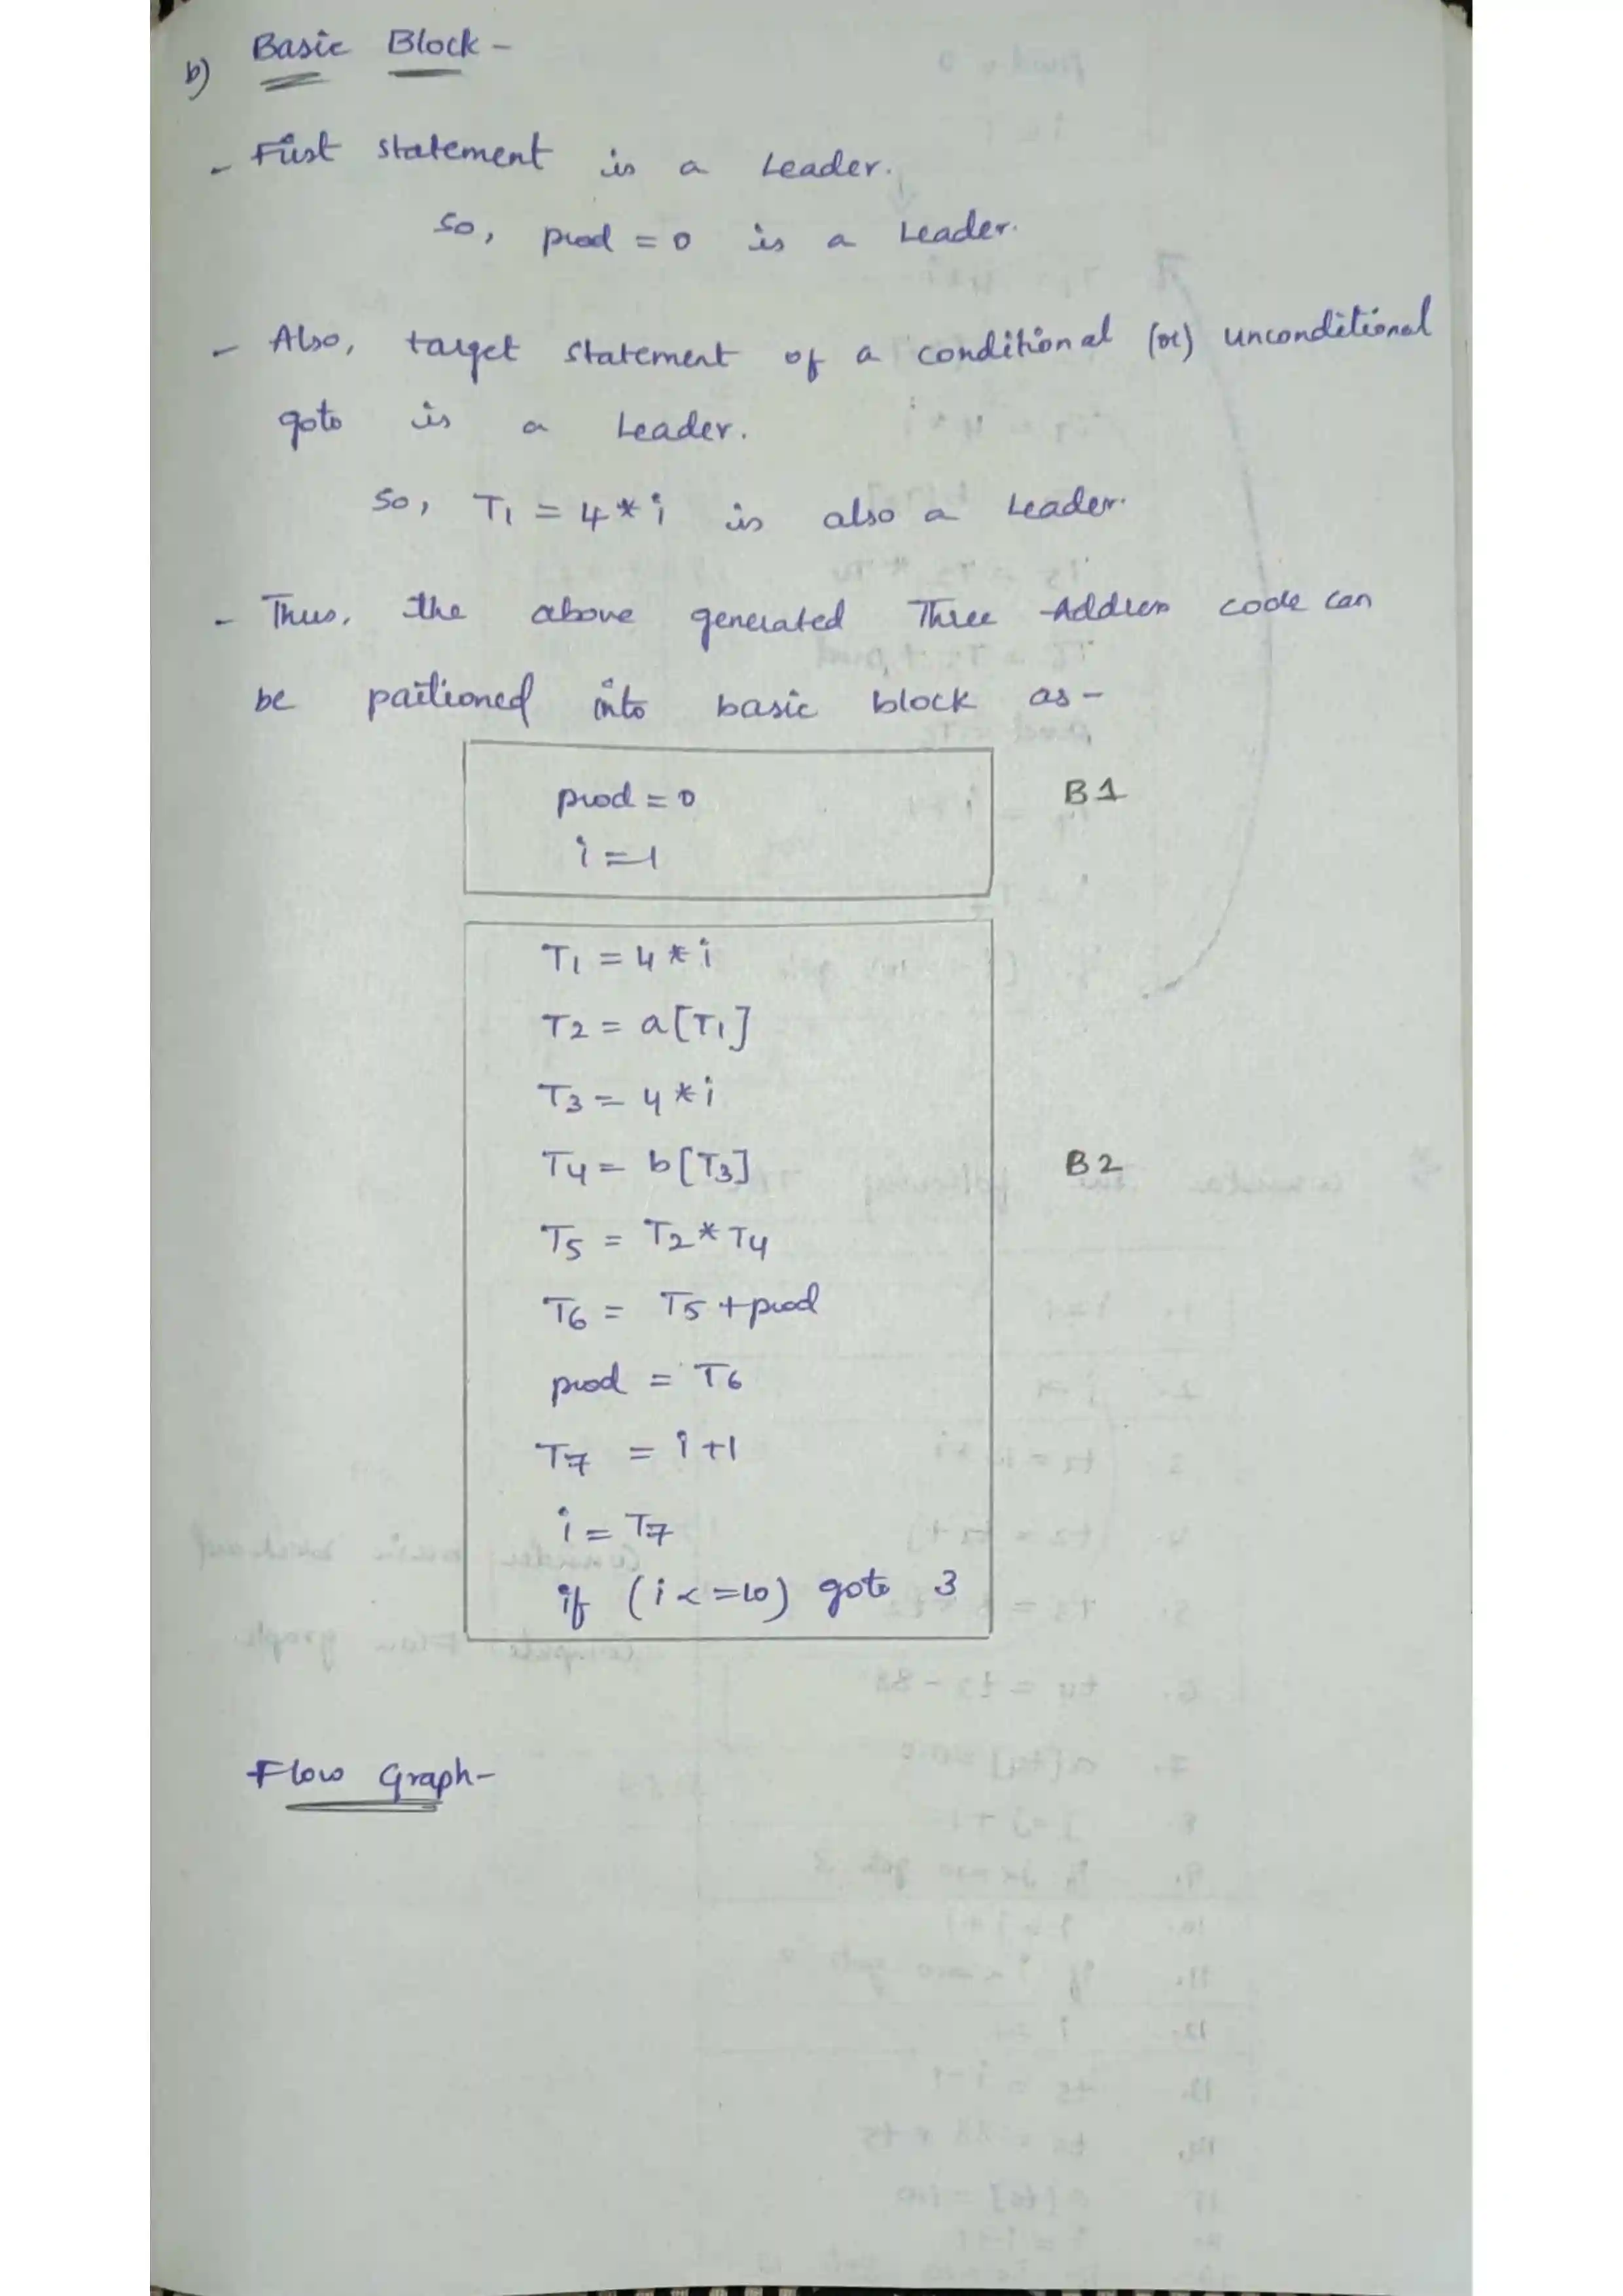 b) Basic Block -
- First statement is a Leader.
So, prod = 0 is a Leader.
- Also, target statement of a conditional (or) unconditional
goto is a Leader.
So, T1 = 4 * i is also a Leader.
- Thus, the above generated Three Address code can
be paitioned into basic block as -
prod = 0
B1
i = 1
T1 = 4 * i
T2 = a[T1]
T3 = 4 * i
T4 = b[T3]
B2
T5 = T2 * T4
T6 = T5 + prod
prod = T6
T7 = i + 1
i = T7
if (i <= 10) goto 3
Flow Graph -